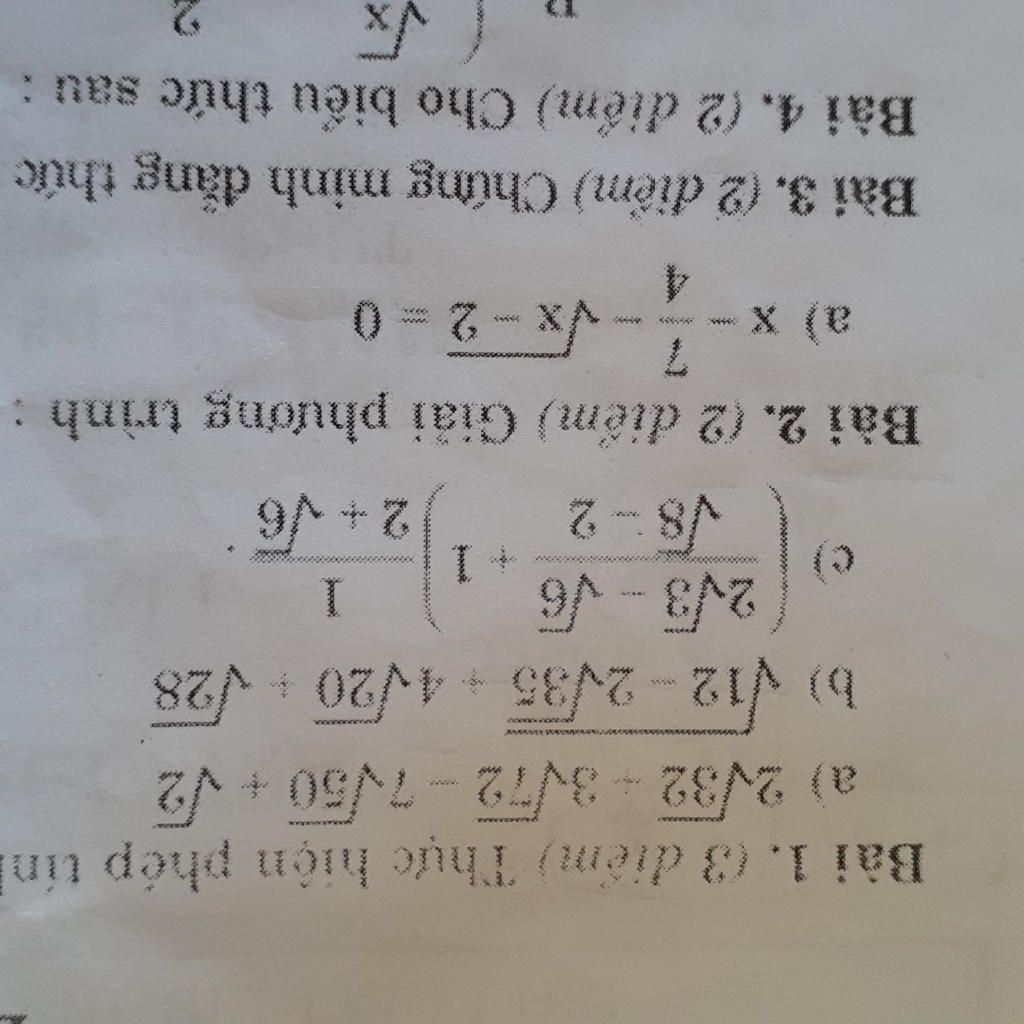 Bài 1. (3 điểm) Thực hiện phép tính
a) 2√32 + 3√72 − 7√50 + √2
b) √(12 − 2√35) + 4√20 + √28
c) ((2√3 − √6)/(√8 − 2) + 1) 1/(2 + √6) .
Bài 2. (2 điểm) Giải phương trình :
a) x − 7/4 − √(x − 2) = 0
Bài 3. (2 điểm) Chứng minh đẳng thức
Bài 4. (2 điểm) Cho biểu thức sau :
√x 2